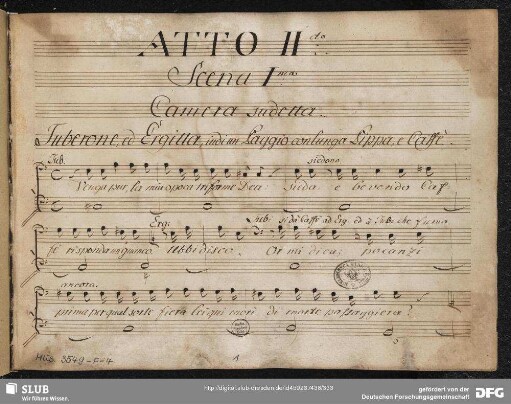 ATTO II do
Scena I ma
Camera sudetta.
Tuberone, ed Ergilla, indi un Paggio con lunga Pippa, e Caffè.
Tub. siedono
Venga pur, la mia sposa Dea: sieda e bevendo Caf
Erg: Tub: si dà Caffè ad Erg. ed a Tube che fuma
fè risponda Ubbidisco. Or mi dica: pocanzi
ancora.
prima per qual sorte fiera lei qui morì di morte passaggiera?
Mus. 3549-F-4
1
SLUB
Wir führen Wissen.
http://digital.slub-dresden.de/
gefördert von der
Deutschen Forschungsgemeinschaft
DFG